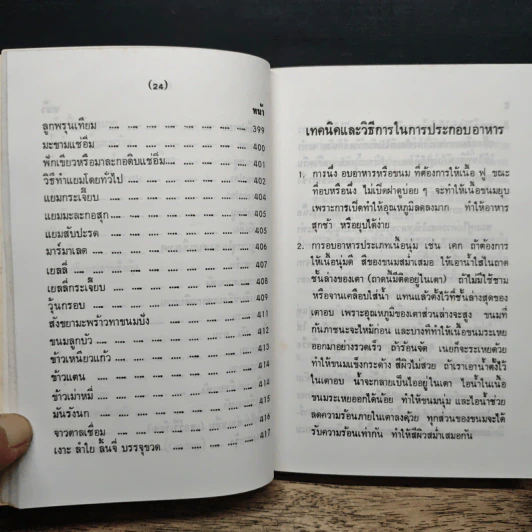 (24)
หน้า
ลูกพรุนเทียม .... .... .... .... .... 399
มะขามแช่อิ่ม .... .... .... .... .... 400
ฟักเขียวหรือมาละกอดิบแช่อิ่ม .... .... .... 401
วิธีทำแยมโดยทั่วไป .... .... .... .... 402
แยมกระเจี๊ยบ .... .... .... .... .... 404
แยมมะละกอสุก .... .... .... .... .... 405
แยมสับปะรด .... .... .... .... .... 405
มาร์มาเลด .... .... .... .... .... 406
เยลลี่ .... .... .... .... .... 407
เยลลี่กระเจี๊ยบ .... .... .... .... .... 408
วุ้นกรอบ .... .... .... .... .... 409
สังขยามะพร้าวทาขนมปัง .... .... .... .... 411
ขนมลูกบัว .... .... .... .... .... 412
ข้าวเหนียวแก้ว .... .... .... .... .... 413
ข้าวแตน .... .... .... .... .... 414
ข้าวเม่าหมี่ .... .... .... .... .... 414
มันรังนก .... .... .... .... .... 415
จาวตาลเชื่อม .... .... .... .... .... 416
เงาะ ลำไย ลิ้นจี่ บรรจุขวด .... .... .... 417
เทคนิคและวิธีการในการประกอบอาหาร
1. การนึ่ง อบอาหารหรือขนม ที่ต้องการให้เนื้อ ฟู ขณะ
ที่อบหรือนึ่ง ไม่เปิดฝาดูบ่อย ๆ จะทำให้เนื้อขนมยุบ
เพราะการเปิดทำให้อุณหภูมิลดลงมาก ทำให้อาหาร
สุกช้า หรือยุบได้ง่าย
2. การอบอาหารประเภทเนื้อนุ่ม เช่น เคก ถ้าต้องการ
ให้เนื้อนุ่มดี สีของขนมสม่ำเสมอ ใช้เอาน้ำใส่ในถาด
ชั้นล่างของเตา (ถาดนี้มีติดอยู่ในเตา) ถ้าไม่มีใช้ชาม
หรือจานเคลือบใส่น้ำ แทนแล้วตั้งไว้ที่ชั้นล่างสุดของ
เตาอบ เพราะอุณหภูมิของเตาส่วนล่างจะสูง ขนมที่
ก้นภาชนะจะไหม้ก่อน และบางทีทำให้ไอน้ำในเนื้อขนมระเหย
ออกมาอย่างรวดเร็ว ถ้าร้อนจัด เนยก็จะระเหยด้วย
ทำให้ขนมแข็งกระด้าง สีผิวไม่สวย ถ้าเราเอาน้ำตั้งไว้
ในเตาอบ น้ำจะกลายเป็นไออยู่ในเตา ไอน้ำในเนื้อ
ขนมระเหยออกได้น้อย ทำให้ขนมนุ่ม และไอน้ำช่วย
ลดความร้อนภายในเตาลงด้วย ทุกส่วนของขนมจะได้
รับความร้อนเท่ากัน ทำให้สีผิวสม่ำเสมอกัน